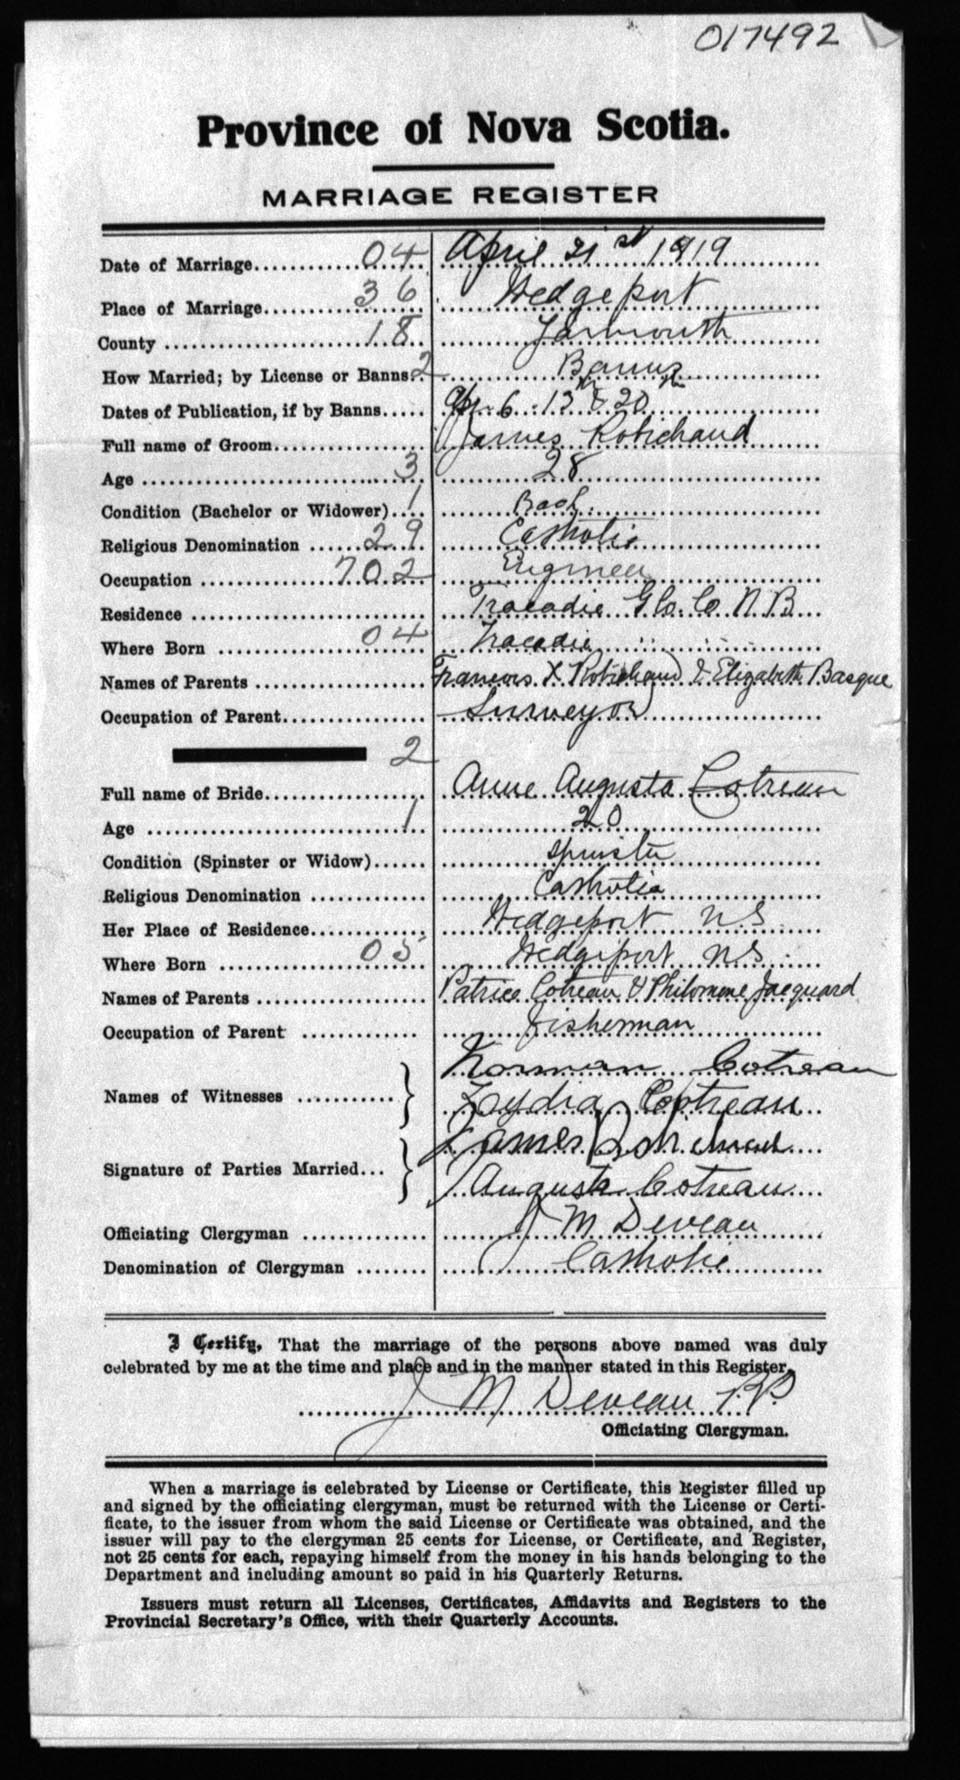 017492
Province of Nova Scotia.
MARRIAGE REGISTER
Date of Marriage 04 April 21st 1919
Place of Marriage 36 Wedgeport
County 18 Yarmouth
How Married; by License or Banns 2 Banns
Dates of Publication, if by Banns Apr. 6. 13th & 20th
Full name of Groom James Robichaud
Age 3 28
Condition (Bachelor or Widower) 1 Bach.
Religious Denomination 29 Catholic
Occupation 702 Engineer
Residence Tracadie Glo. Co N B
Where Born 04 Tracadie
Names of Parents Francois X Robichaud & Elizabeth Basque
Occupation of Parent Surveyor
2
Full name of Bride Anne Augusta Cotreau
Age 1 20
Condition (Spinster or Widow) Spinster
Religious Denomination Catholic
Her Place of Residence Wedgeport N S
Where Born 05 Wedgeport N S
Names of Parents Patrice Cotreau & Philomene Jacquard
Occupation of Parent Fisherman
Names of Witnesses Norman Cotreau
Lydia Cotreau
Signature of Parties Married James Robichaud
Augusta Cotreau
Officiating Clergyman J M Deveau
Denomination of Clergyman Catholic
I Certify, That the marriage of the persons above named was duly
celebrated by me at the time and place and in the manner stated in this Register.
J M Deveau P.P
Officiating Clergyman.
When a marriage is celebrated by License or Certificate, this Register filled up
and signed by the officiating clergyman, must be returned with the License or Certi-
ficate, to the issuer from whom the said License or Certificate was obtained, and the
issuer will pay to the clergyman 25 cents for License, or Certificate, and Register,
not 25 cents for each, repaying himself from the money in his hands belonging to the
Department and including amount so paid in his Quarterly Returns.
Issuers must return all Licenses, Certificates, Affidavits and Registers to the
Provincial Secretary's Office, with their Quarterly Accounts.